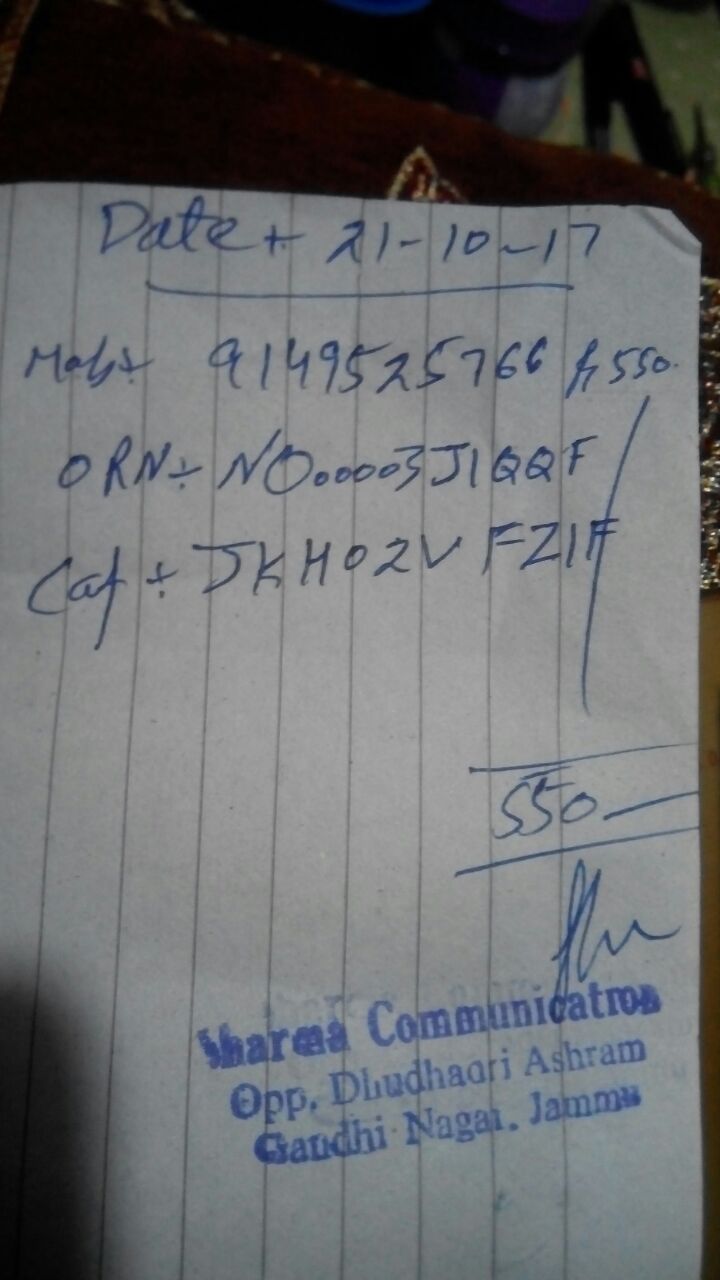 Date÷ 21-10-17
Mob÷ 9149525766 Rs 550
ORN÷ NO00003J1QQF
Caf÷ JKH02VFZ1F
550
Sharma Communication
Opp. Dhudhadri Ashram
Gandhi Nagar. Jammu